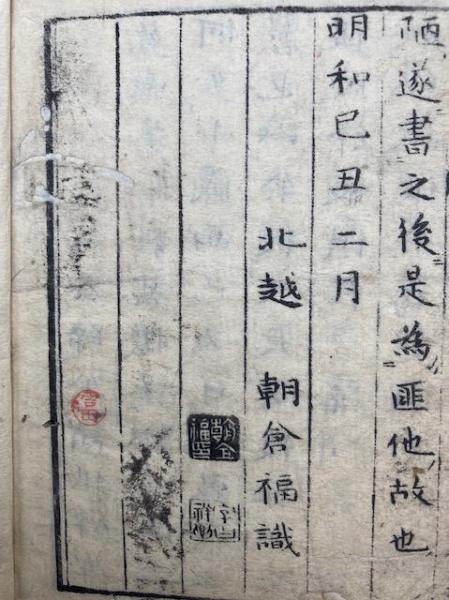 陋遂書之後是為匪他故也
明和己丑二月
北越 朝倉福識